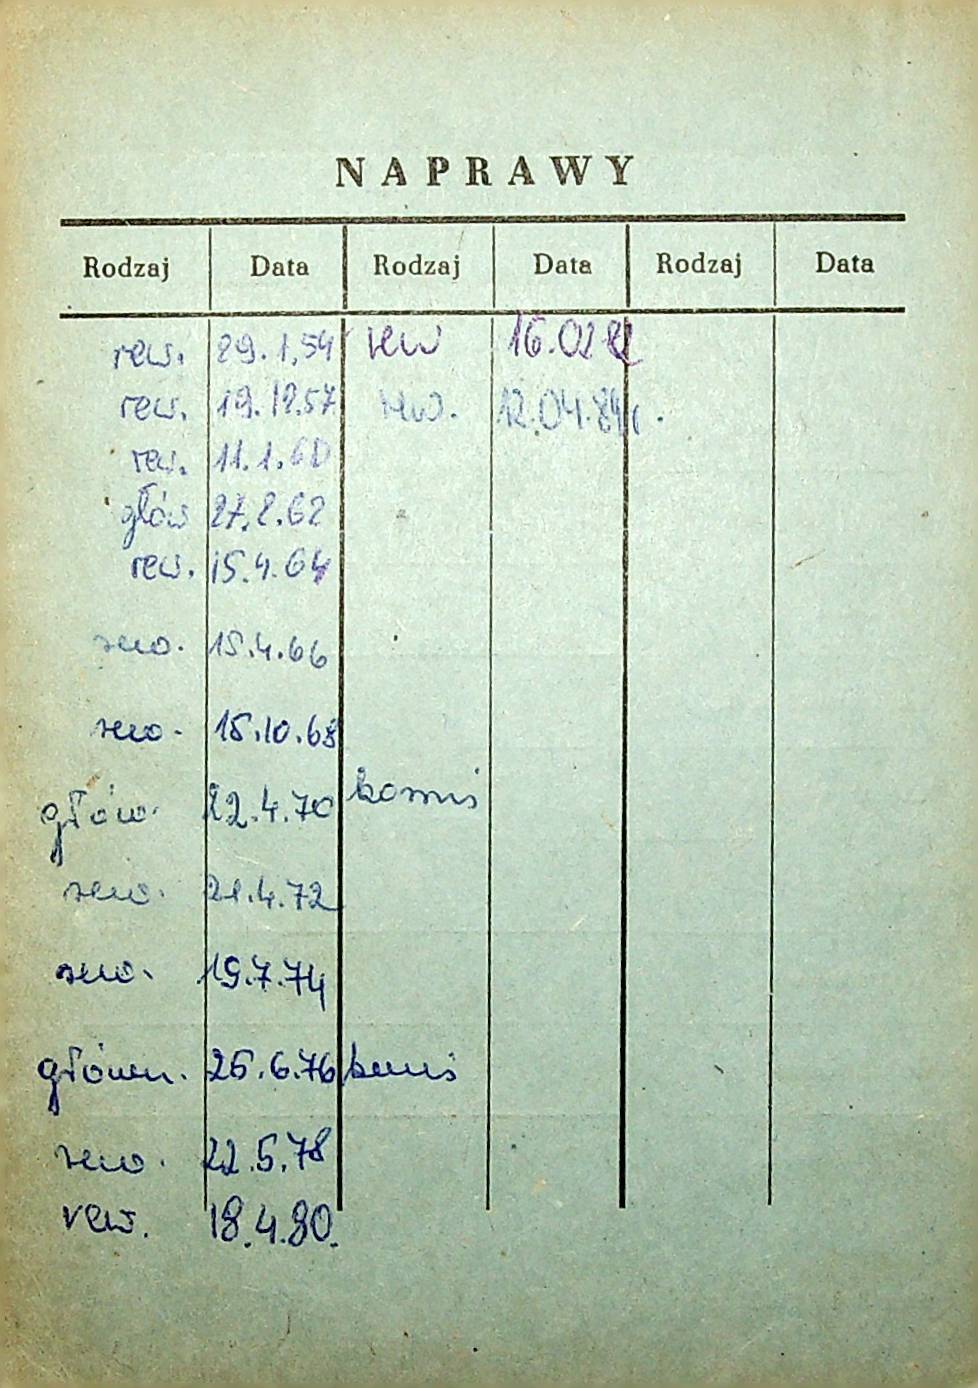 NAPRAWY
Rodzaj Data Rodzaj Data Rodzaj Data
rew. 29.1.54 rew 16.02.82
rew. 19.12.57 rew. 12.04.84r.
rew. 11.1.60
głów 27.2.62
rew. 15.4.64
rew. 15.4.66
rew. 15.10.68
głów. 22.4.70 komis
rew. 21.4.72
rew. 19.7.74
główn. 26.6.76 komis
rew. 22.5.78
rew. 18.4.80.